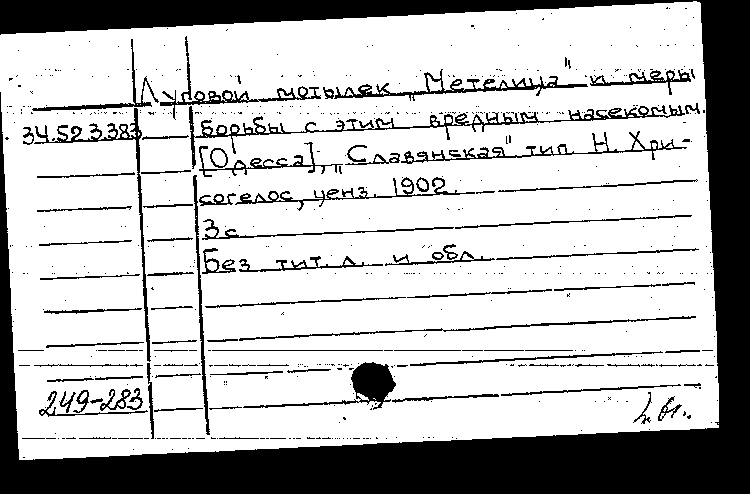 Луговой мотылек „Метелица" и меры
34.52.3.383 борьбы с этим вредным насекомым.
[Одесса], „Славянская" тип. Н. Хри-
согелос, ценз. 1902.
3 с.
Без тит. л. и обл.
249-283